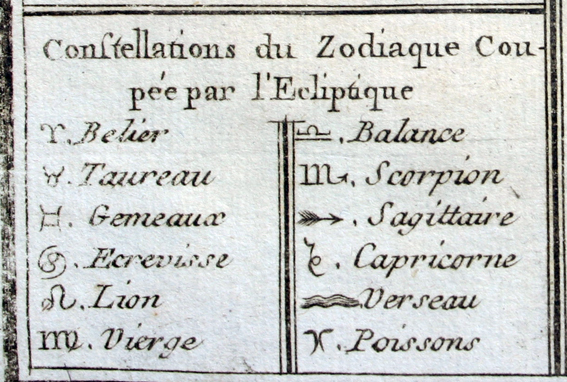 Conſtellations du Zodiaque Cou-
pée par l'Ecliptique
♈. Belier
♉. Taureau
♊. Gemeaux
♋. Ecrevisse
♌. Lion
♍. Vierge
♎. Balance
♏. Scorpion
♐. Sagittaire
♑. Capricorne
♒ Verseau
♓. Poissons